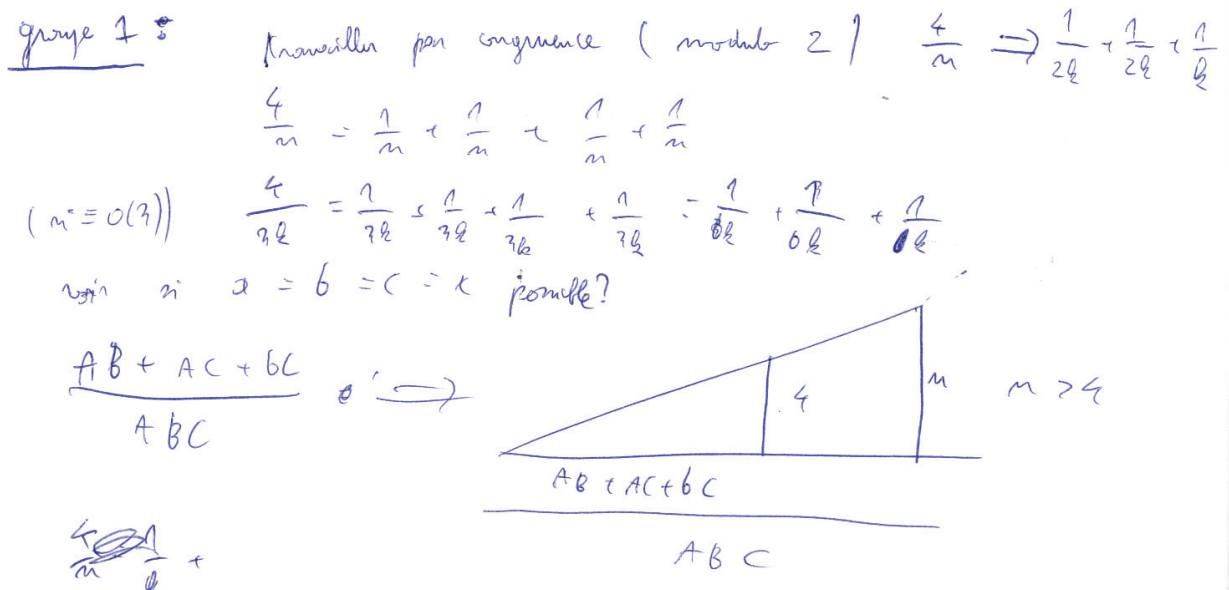 groupe 1 :
travailler par congruence ( modulo 2 ) 4/n ⟹ 1/2k + 1/2k + 1/k
4/n = 1/n + 1/n + 1/n + 1/n
(n ≡ 0(3)) 4/3k = 1/3k + 1/3k + 1/3k + 1/3k = 1/6k + 1/6k + 1/k
voir si a = b = c = x possible?
AB + AC + BC / ABC ⟹
4 n n > 4
AB + AC + BC
ABC
4/n 1/ +